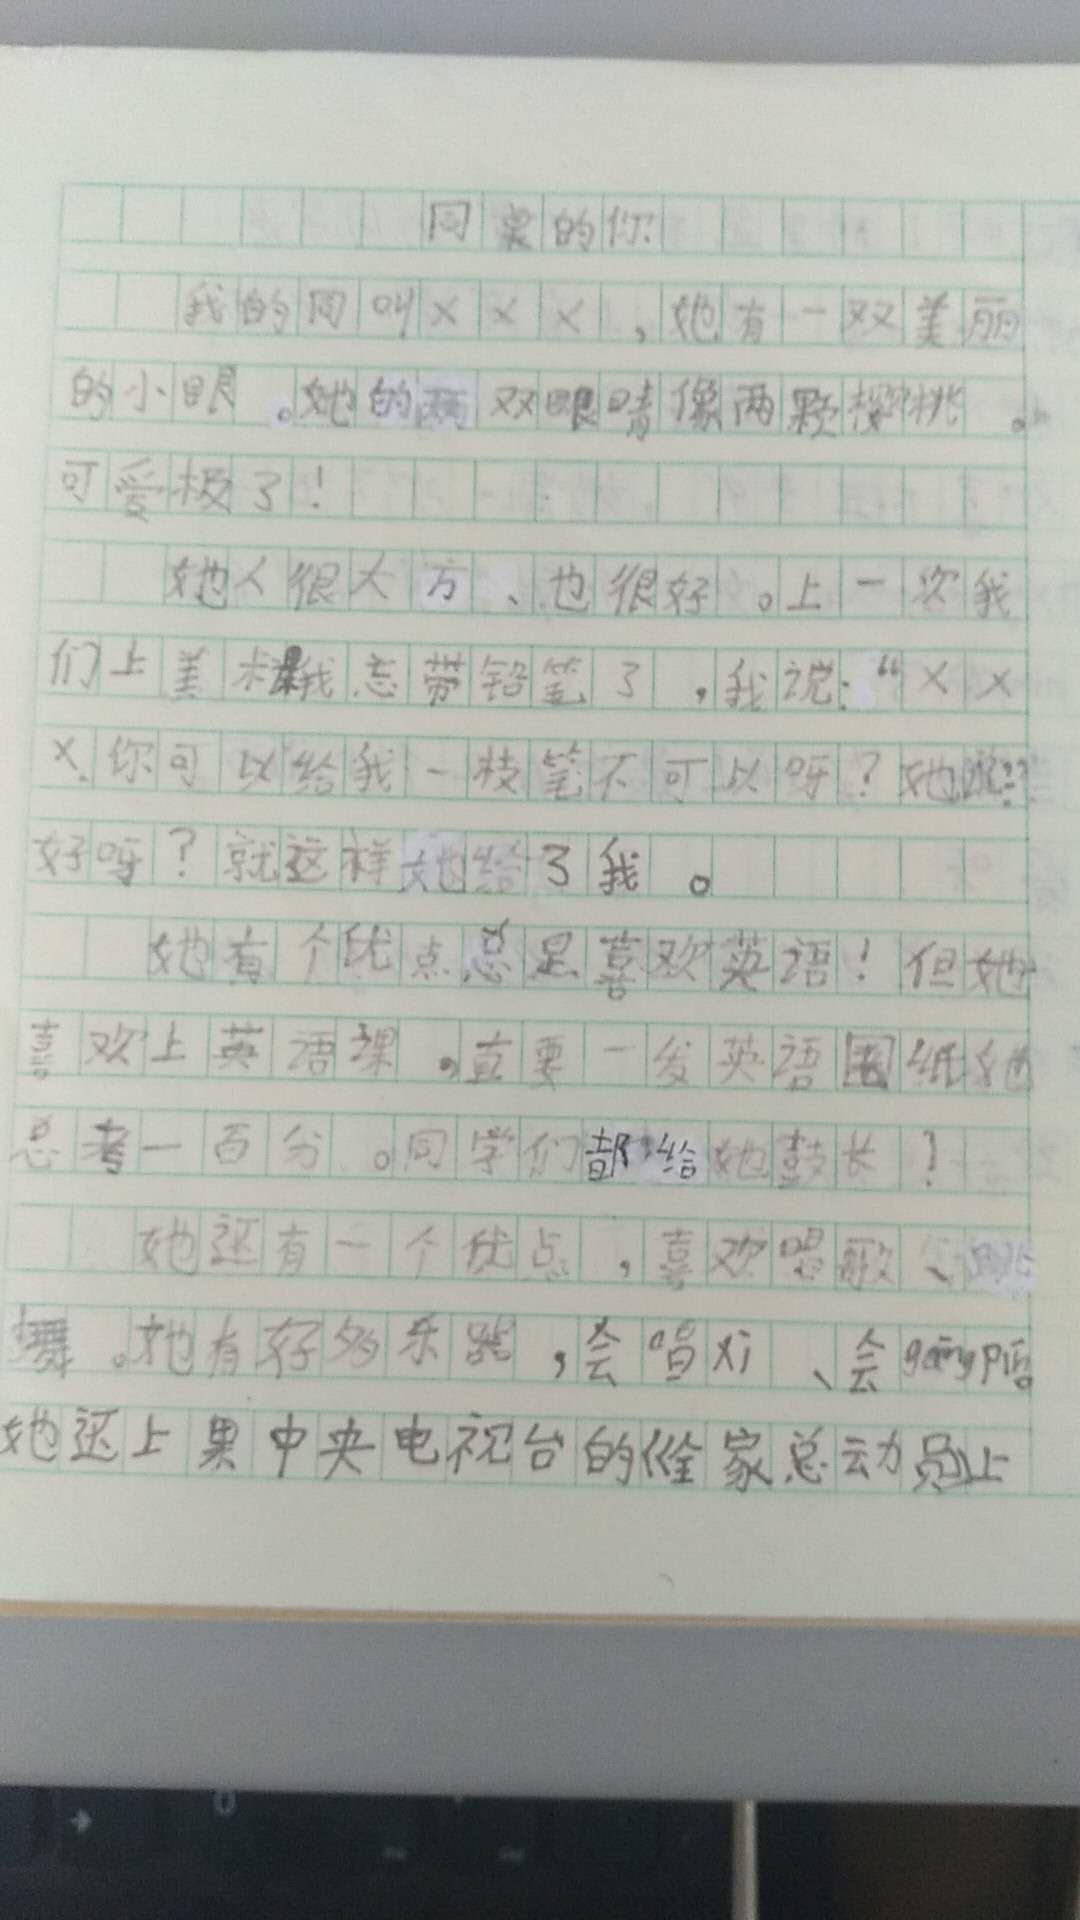 同桌的你
我的同叫×××,她有一双美丽
的小眼。她的两双眼睛像两颗樱桃。
可爱极了!
她人很大方、也很好。上一次我
们上美术课我忘带铅笔了,我说:“××
×你可以给我一枝笔不可以呀?她说??
好呀?就这样她给了我。
她有个优点总是喜欢英语!但她
喜欢上英语课。直要一发英语 纸她
总考一百分。同学们都给她鼓长?
她还有一个优点,喜欢唱歌、跳
舞。她有好多乐器,会唱xi、会
她还上果中央电视台的《全家总动员》上
0